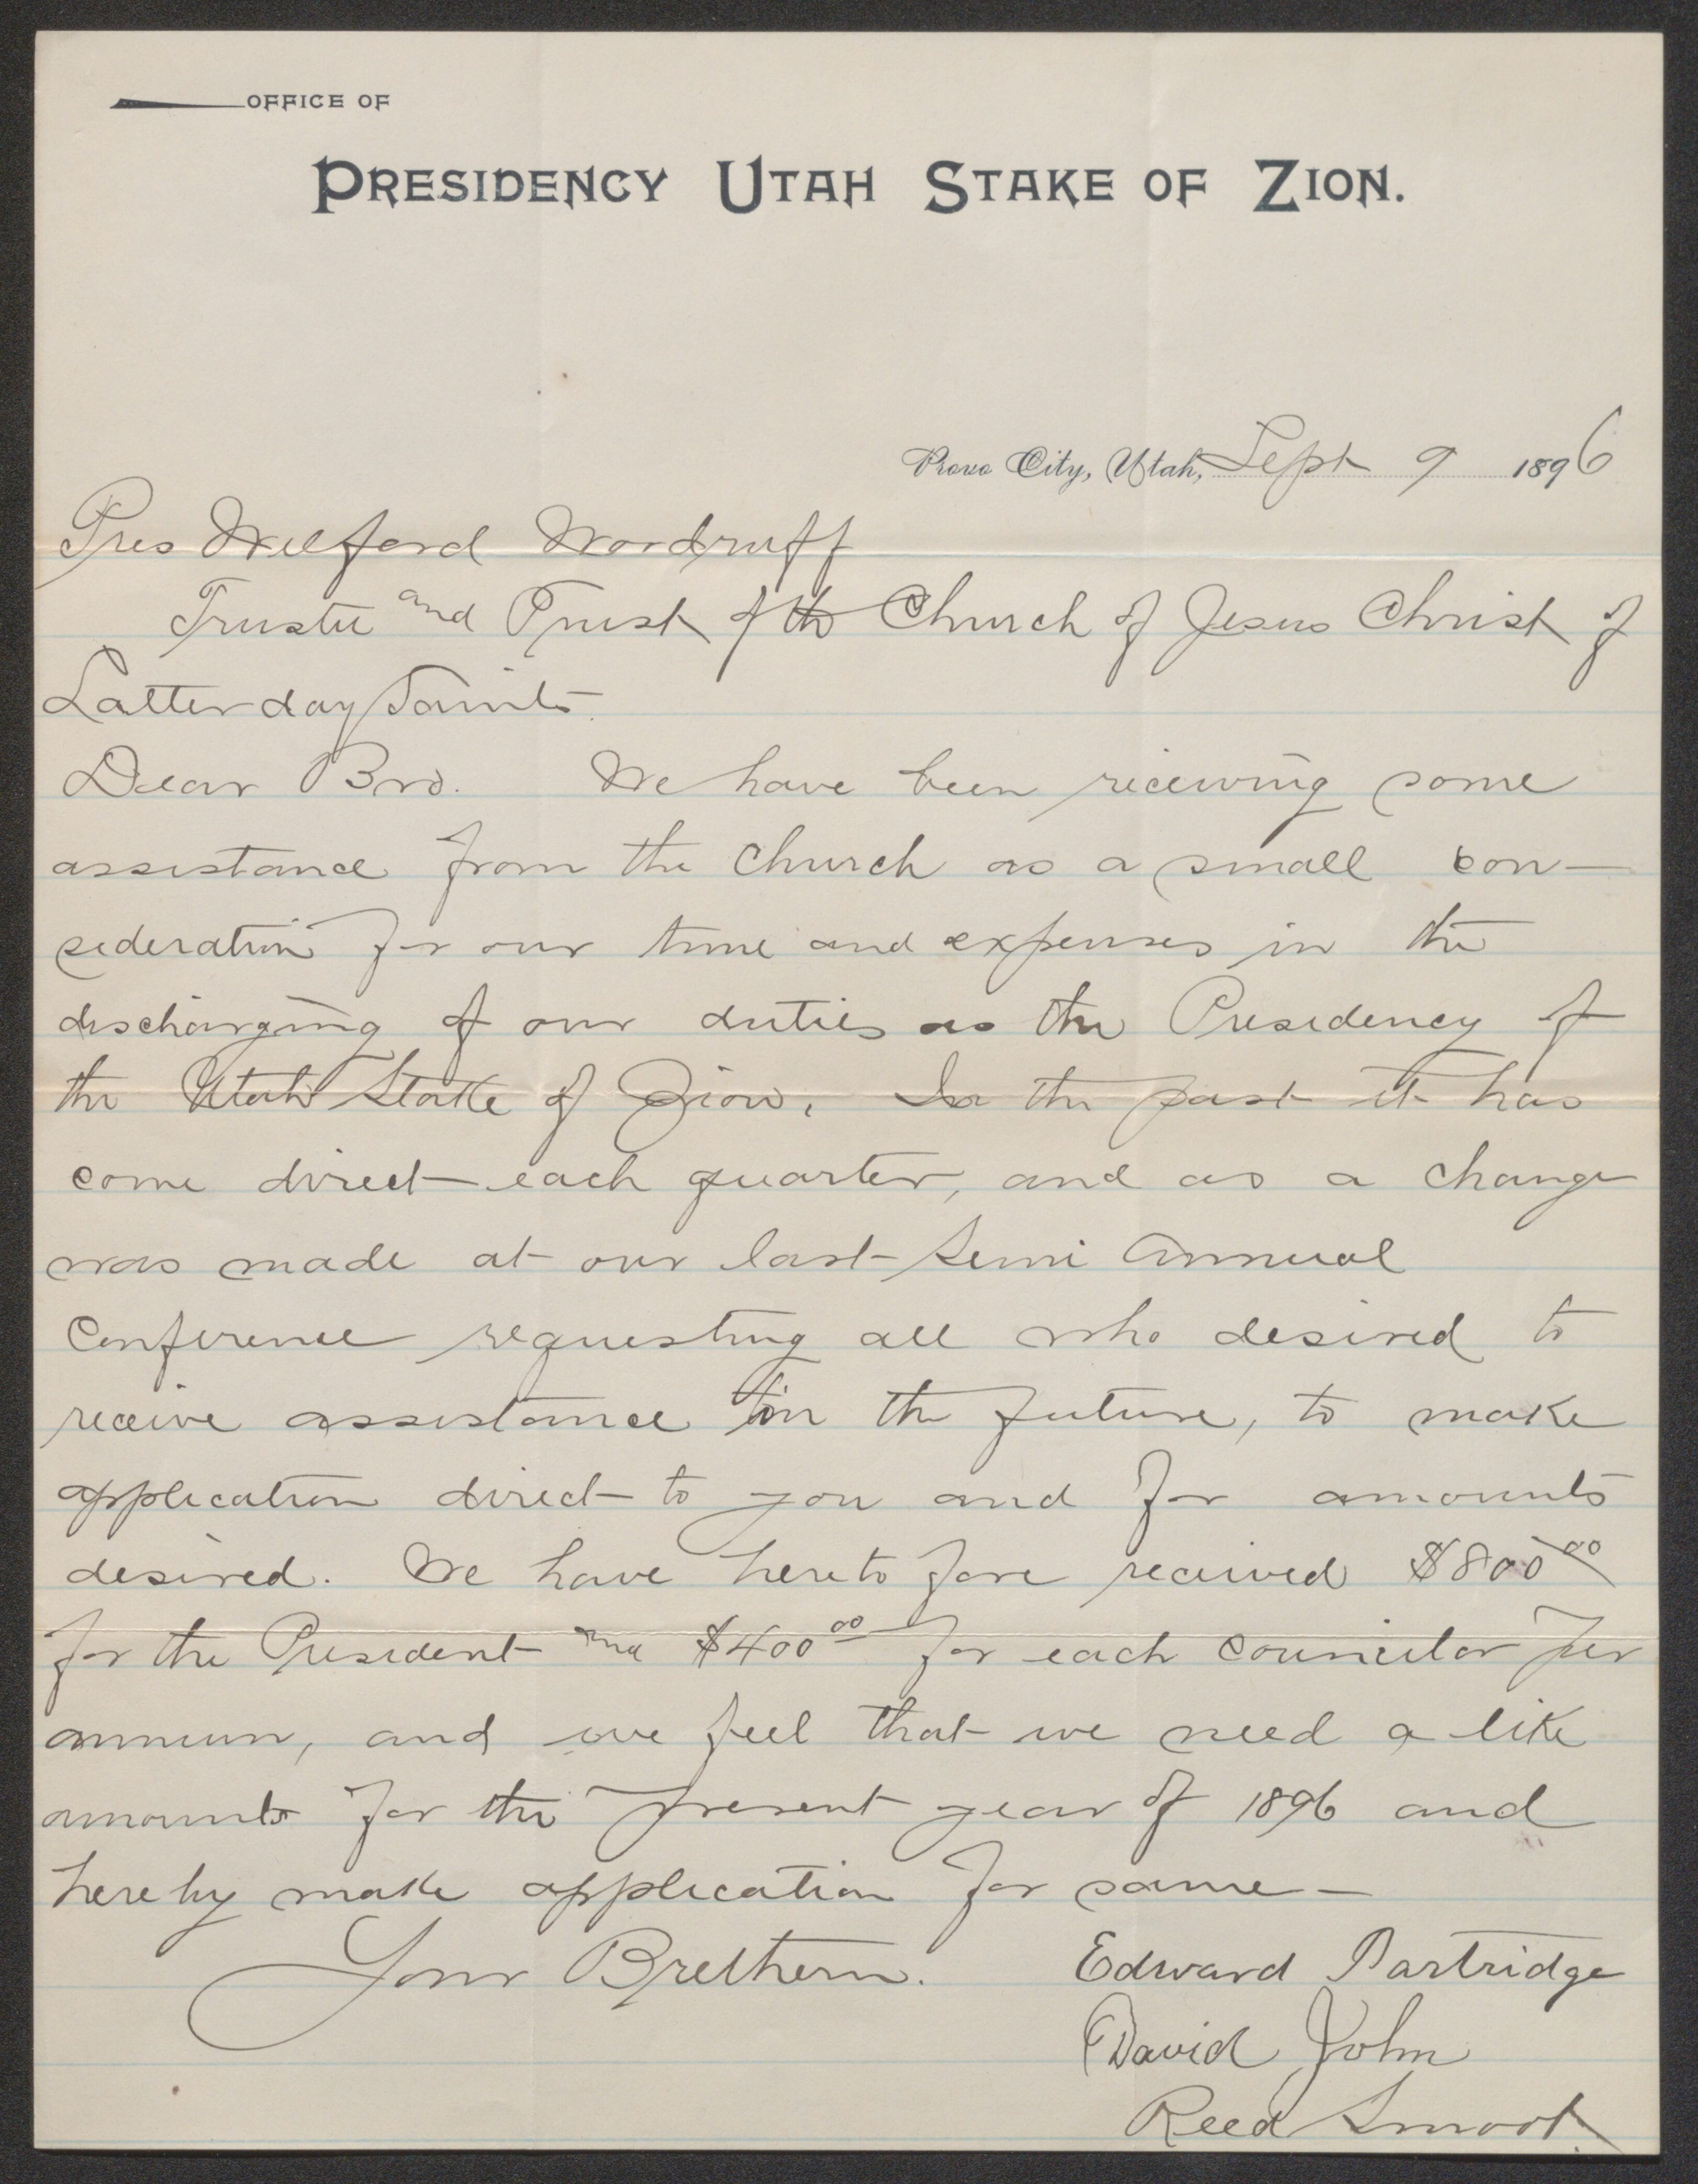 OFFICE OF
PRESIDENCY UTAH STAKE OF ZION.
Provo City, Utah, Sept 9 1896
Pres Wilford Woodruff
Trustee and Trust of the Church of Jesus Christ of
Latter day Saints
Dear Bro. We have been receiving some
assistance from the Church as a small con-
sideration for our time and expenses in the
discharging of our duties as the Presidency of
the Utah Stake of Zion, In the past it has
come direct each quarter, and as a change
was made at our last Semi Annual
Conference requesting all who desired to
receive assistance in the future, to make
application direct to you and for amounts
desired. We have hereto fore received $800 00
for the President and $400 00 for each councilor per
annum, and we feel that we need a like
amounts for the present year of 1896 and
hereby make application for same -
Your Brethern. Edward Partridge
David John
Reed Smoot.